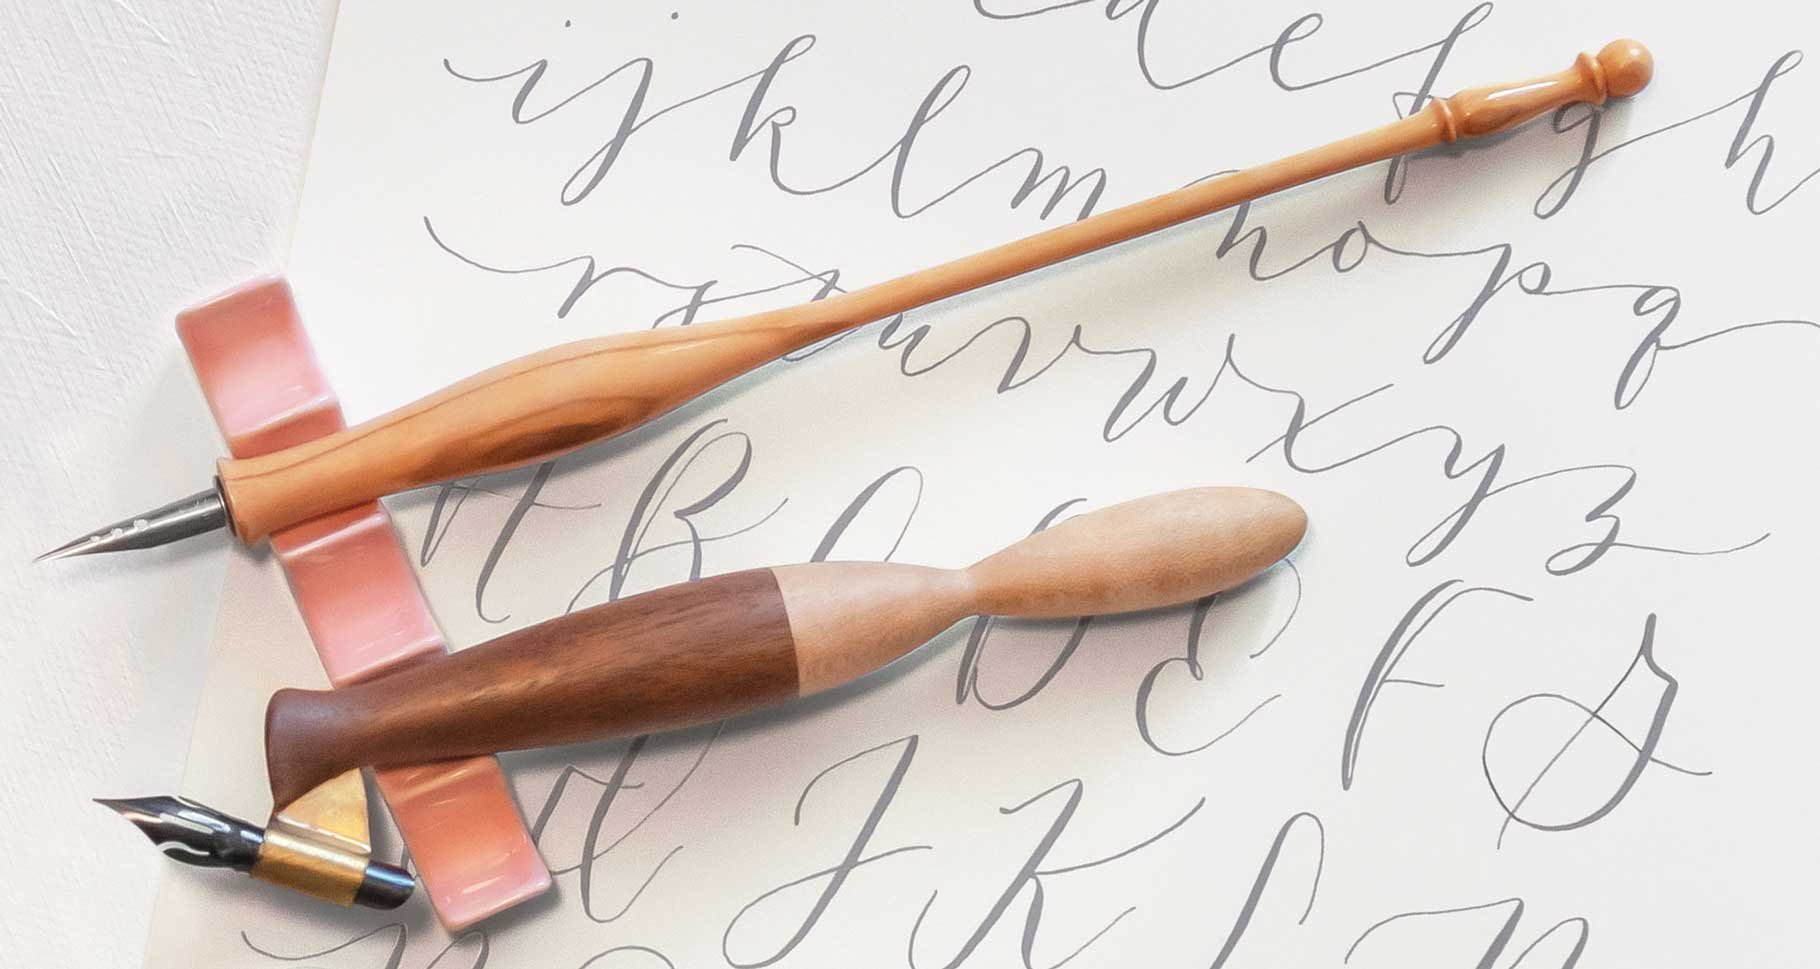 d e f g h
i j k l m n o p q
r s t u v w x y z
A B C D E F G
H I J K L M